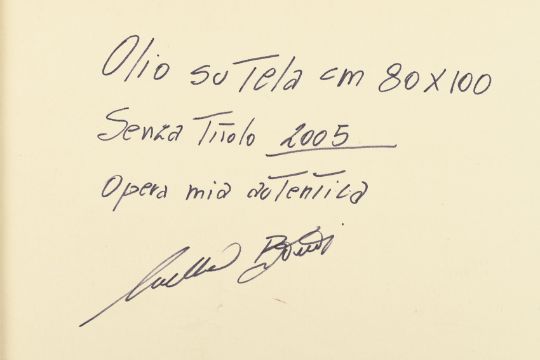 Olio su Tela cm 80x100
Senza Titolo 2005
Opera mia autentica